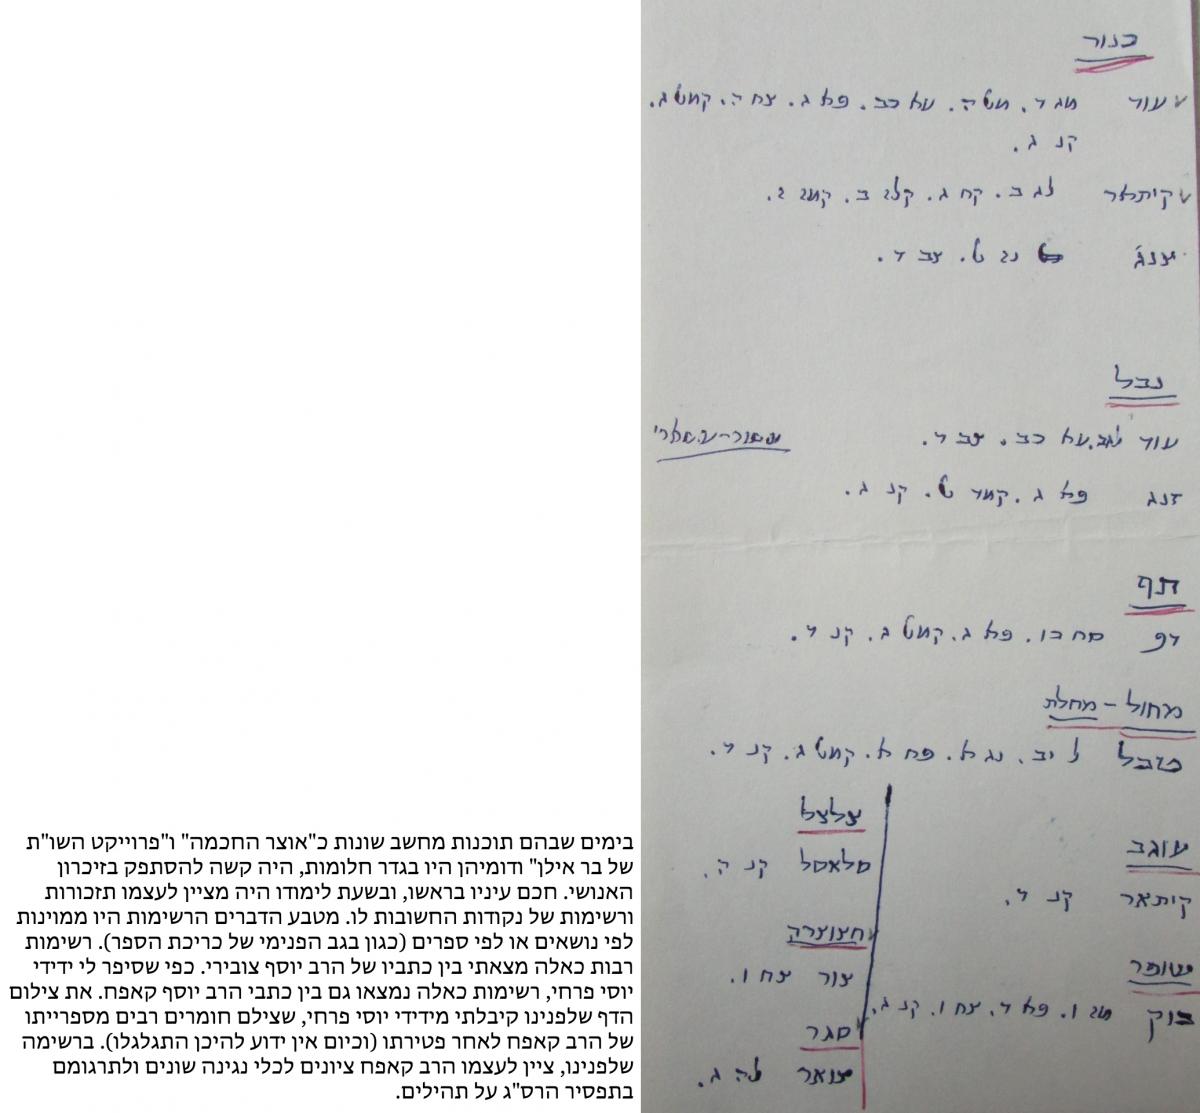 כנור
עוד מג ד. מט ה. עא כב. פא ג. צח ה. קמט ג.
קנ ג.
קיתאר לג ב. קח ג. קלז ב. קמז ז.
צנג נז ט. צב ד.
נבל
עוד לג ב. עא כב. צב ד. עשור-עשארי
זנג פא ג. קמד ט. קנ ג.
תף
דף סח כו. פא ג. קמט ג. קנ ד.
מחול - מחלת
טבל ל יב. נג א. פח א. קמט ג. קנ ד.
עוגב
קיתאר קנ ד.
שופר
בוק מז ו. פא ד. צח ו. קנ ג.
צלצל
סלאסל קנ ה.
חצוצרה
צור צח ו.
סגר
צואר לה ג.
בימים שבהם תוכנות מחשב שונות כ"אוצר החכמה" ו"פרוייקט השו"ת
של בר אילן" ודומיהן היו בגדר חלומות, היה קשה להסתפק בזיכרון
האנושי. חכם עיניו בראשו, ובשעת לימודו היה מציין לעצמו תזכורות
ורשימות של נקודות החשובות לו. מטבע הדברים הרשימות היו ממוינות
לפי נושאים או לפי ספרים (כגון בגב הפנימי של כריכת הספר). רשימות
רבות כאלה מצאתי בין כתביו של הרב יוסף צובירי. כפי שסיפר לי ידידי
יוסי פרחי, רשימות כאלה נמצאו גם בין כתבי הרב יוסף קאפח. את צילום
הדף שלפנינו קיבלתי מידידי יוסי פרחי, שצילם חומרים רבים מספרייתו
של הרב קאפח לאחר פטירתו (וכיום אין ידוע להיכן התגלגלו). ברשימה
שלפנינו, ציין לעצמו הרב קאפח ציונים לכלי נגינה שונים ולתרגומם
בתפסיר הרס"ג על תהילים.